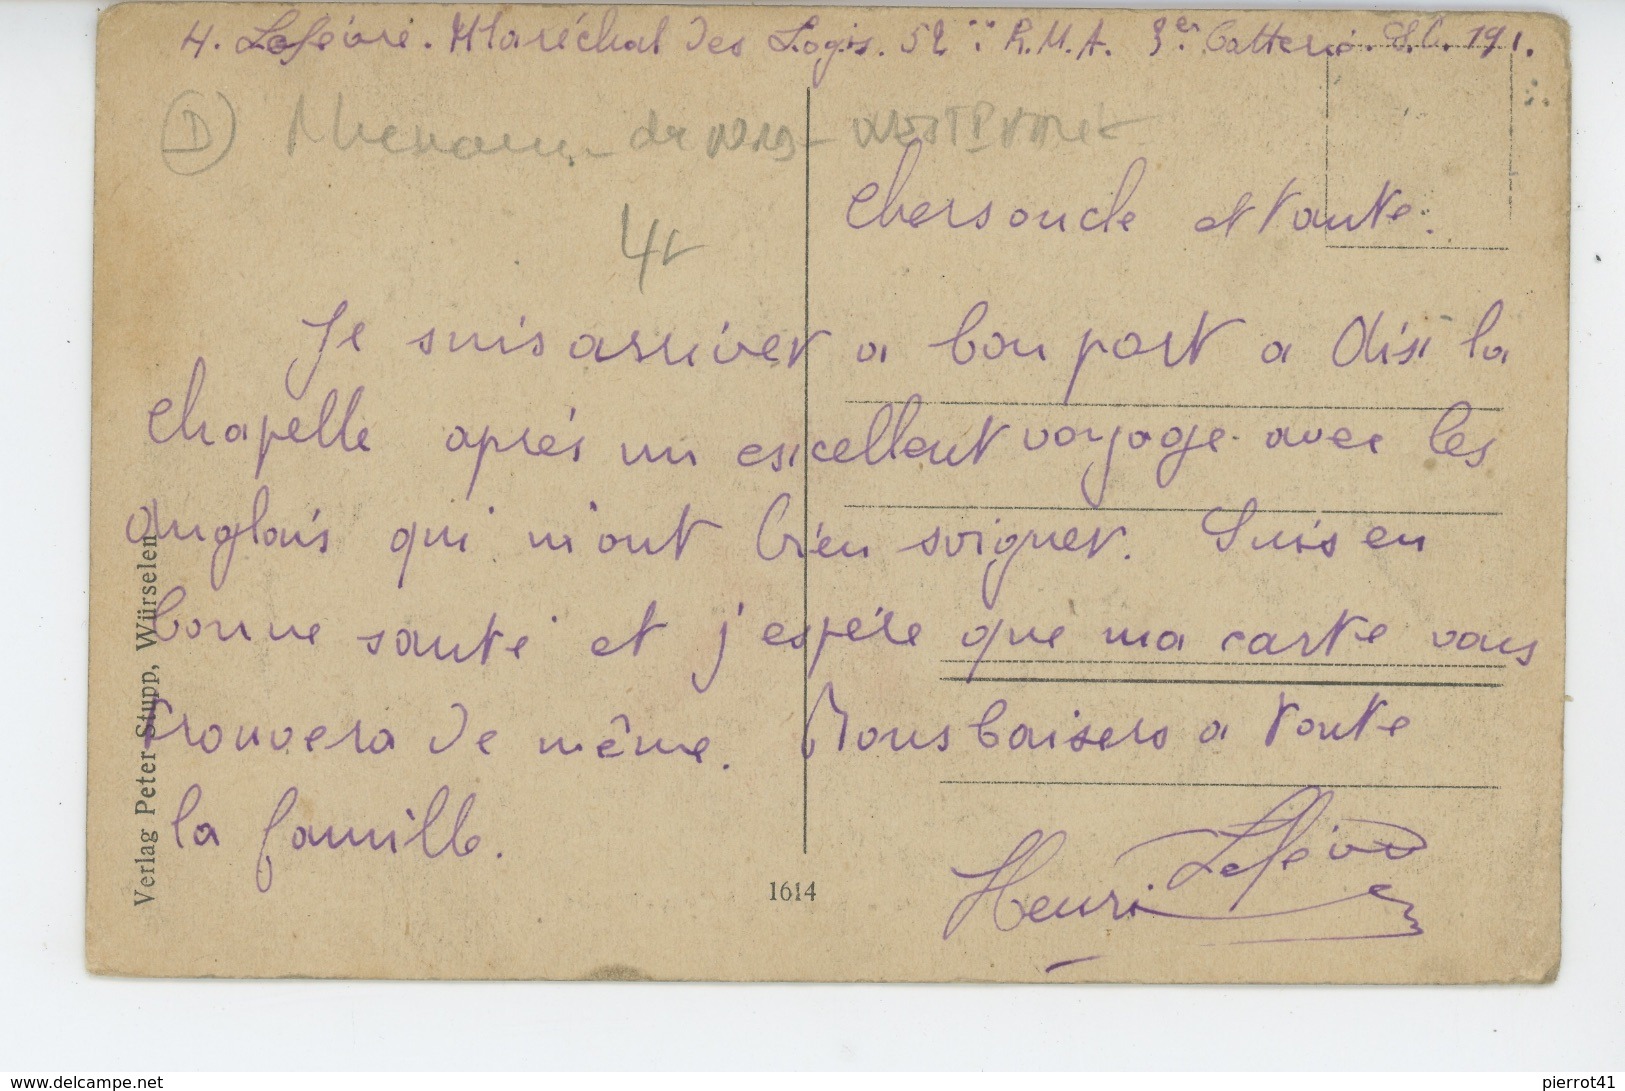 H. Lefèvre. Maréchal des Logis. 52e R.M.A. 3e Batterie. S.C. 191.
(D) Rhenanie - du Nord - WESTPHALIE
Chers oncle et tante.
4€
Je suis arriver a bon port a Aix la
Chapelle après un excellent voyage avec les
anglais qui m'ont bien soigner. Suis en
bonne santé et j'espére que ma carte vous
trouvera de même. Bons baisers a toute
la famille.
Henri Lefèvre
1614
Verlag Peter Stupp, Würselen
www.delcampe.net
pierrot41